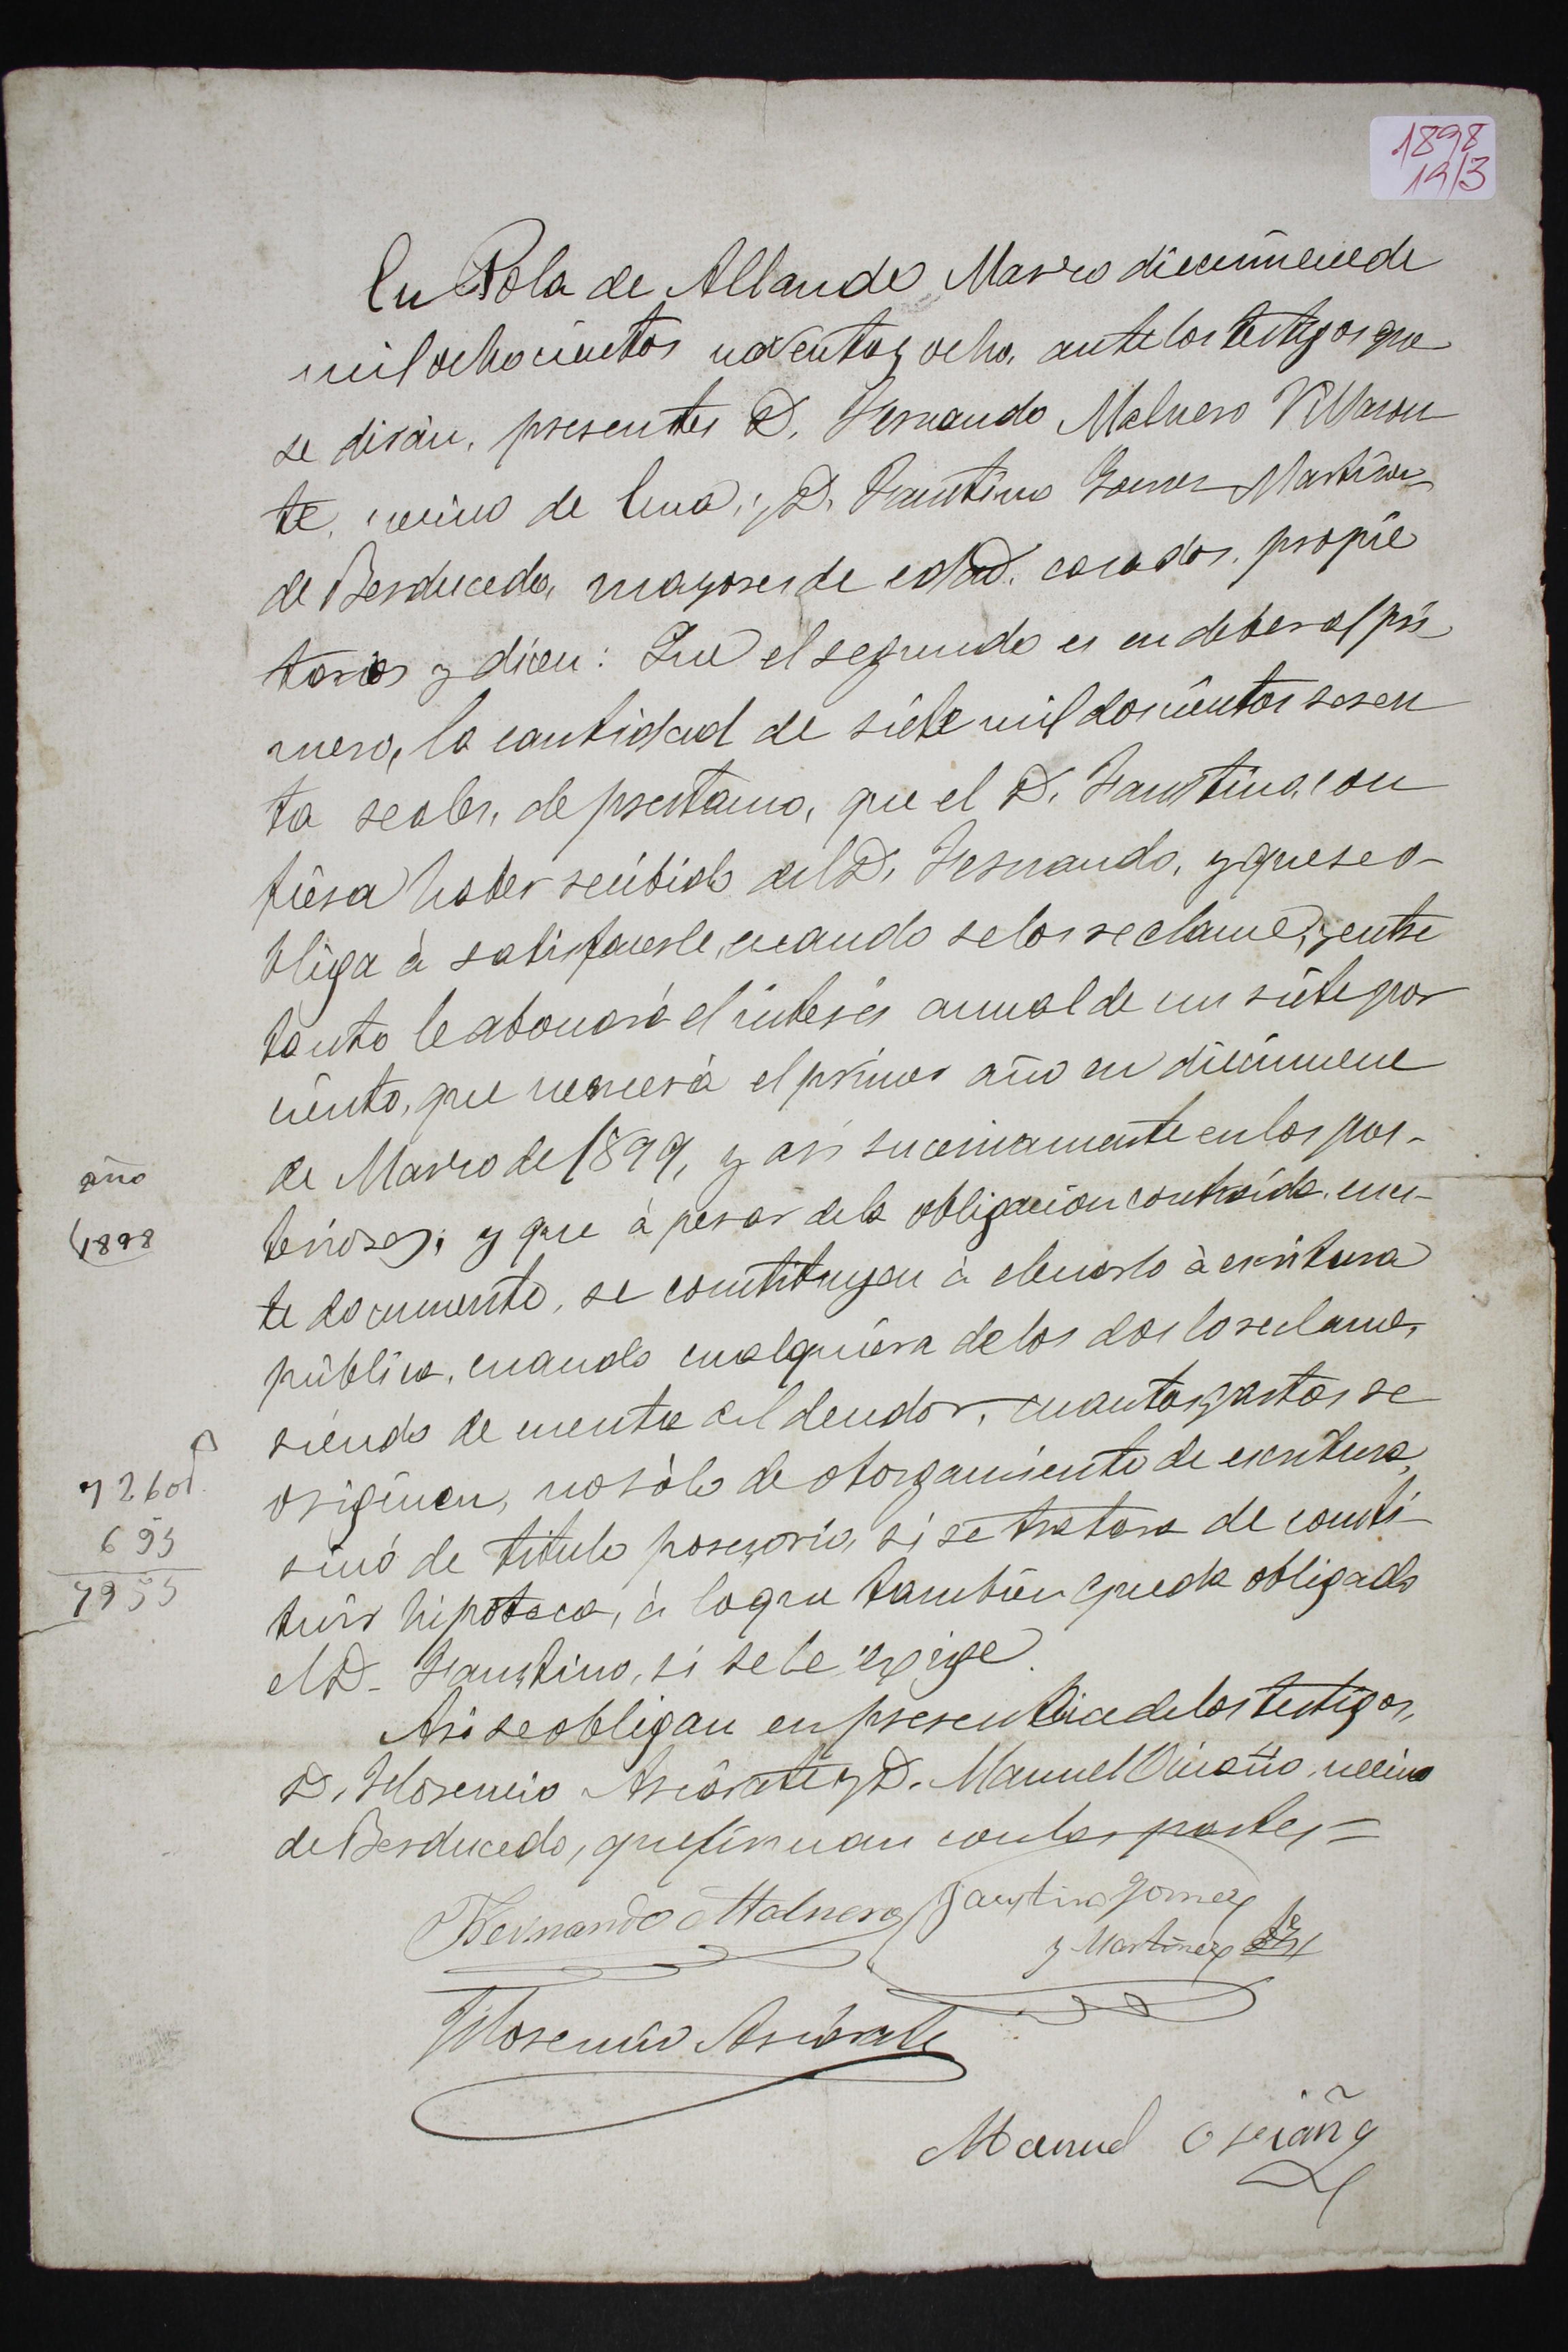 1898
19/3
En Pola de Allande, Marzo diecinuevede
mil ochocientos noventa y ocho, ante los testigos que
se dirán, presentes D. Fernando Malnero Villamon
te, vecino de Ema, y D. Faustino Gomez Martinez
de Berducedo, mayores de edad, casados, propie
tarios y dicen: Que el segundo es en deber al pri
mero, la cantidad de siete mil doscientos sesen
ta reales, de prestamo, que el D. Faustino, con
fiesa haber recibido del D. Fernando, y que se o-
bliga à satisfacerle, cuando se los reclame, y entre
tanto le abonará el interés anual de un siete por
ciento, que vencerà el primer año en diecinueve
de Marzo de 1899, y asi sucesivamente en los pos-
teriores; y que à pesar de la obligacion contraida en es-
te documento, se constituyen à elevarlo à escritura
pública, cuando cualquiera de los dos lo reclame,
siendo de cuenta del deudor, cuantos gastos se
originen, no sòlo de otorgamiento de escritura,
sinó de titulo posesorio, si se tratara de consti-
tuir hipoteca, à lo que tambien queda obligado
el D. Faustino, si se le exige.
Asi se obligan en presencia de los testigos,
D. Florencio Asciárate y D. Manuel Oviaño, vecino
de Berducedo, que firman con las partes=
Fernando Malnero Faustino Gomez
y Martinez
Florencio Asciárate
Manuel
año
1898
7260r
695
7955